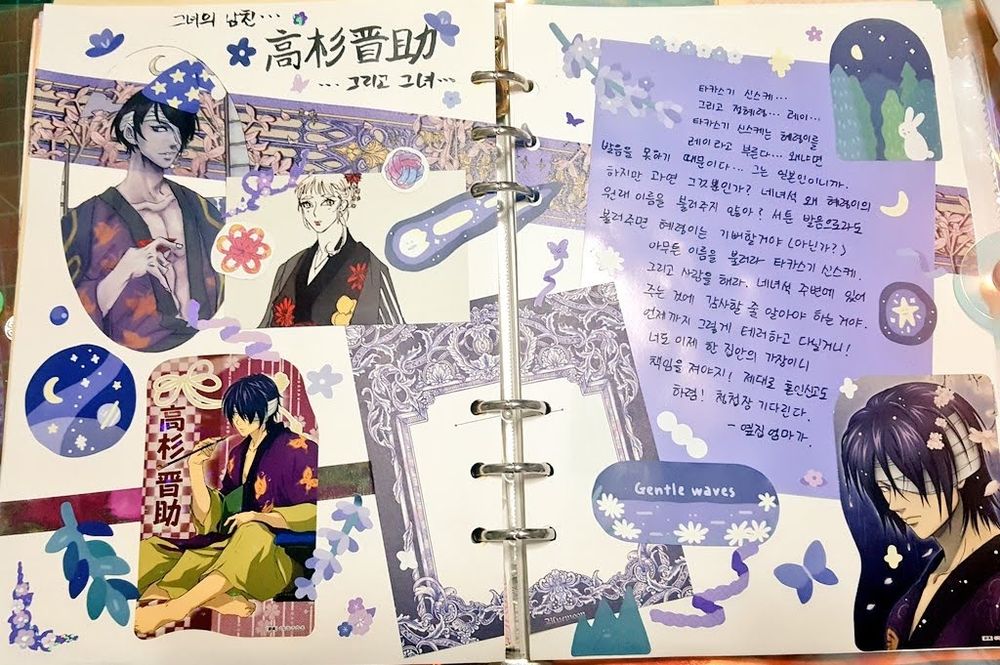 그녀의 남친...
高杉晋助
...그리고 그녀...
高杉晋助
Bluemoon
타카스기 신스케...
그리고 정혜령... 레이...
타카스기 신스케는 혜령이를
레이라고 부른다... 왜냐면
발음을 못하기 때문이다... 그는 일본인이니까.
하지만 과연 그것뿐인가? 네녀석 왜 혜령이의
원래 이름을 불러주지 않아? 서툰 발음으로라도
불러주면 혜령이는 기뻐할거야 (아닌가?)
아무튼 이름을 불러라 타카스기 신스케.
그리고 사랑을 해라. 네녀석 주변에 있어
주는 것에 감사할 줄 알아야 하는거야.
언제까지 그렇게 테러하고 다닐거니!
너도 이제 한 집안의 가장이니
책임을 져야지! 제대로 혼인신고도
하렴! 청첩장 기다린다.
- 옆집 엄마가.
Gentle waves